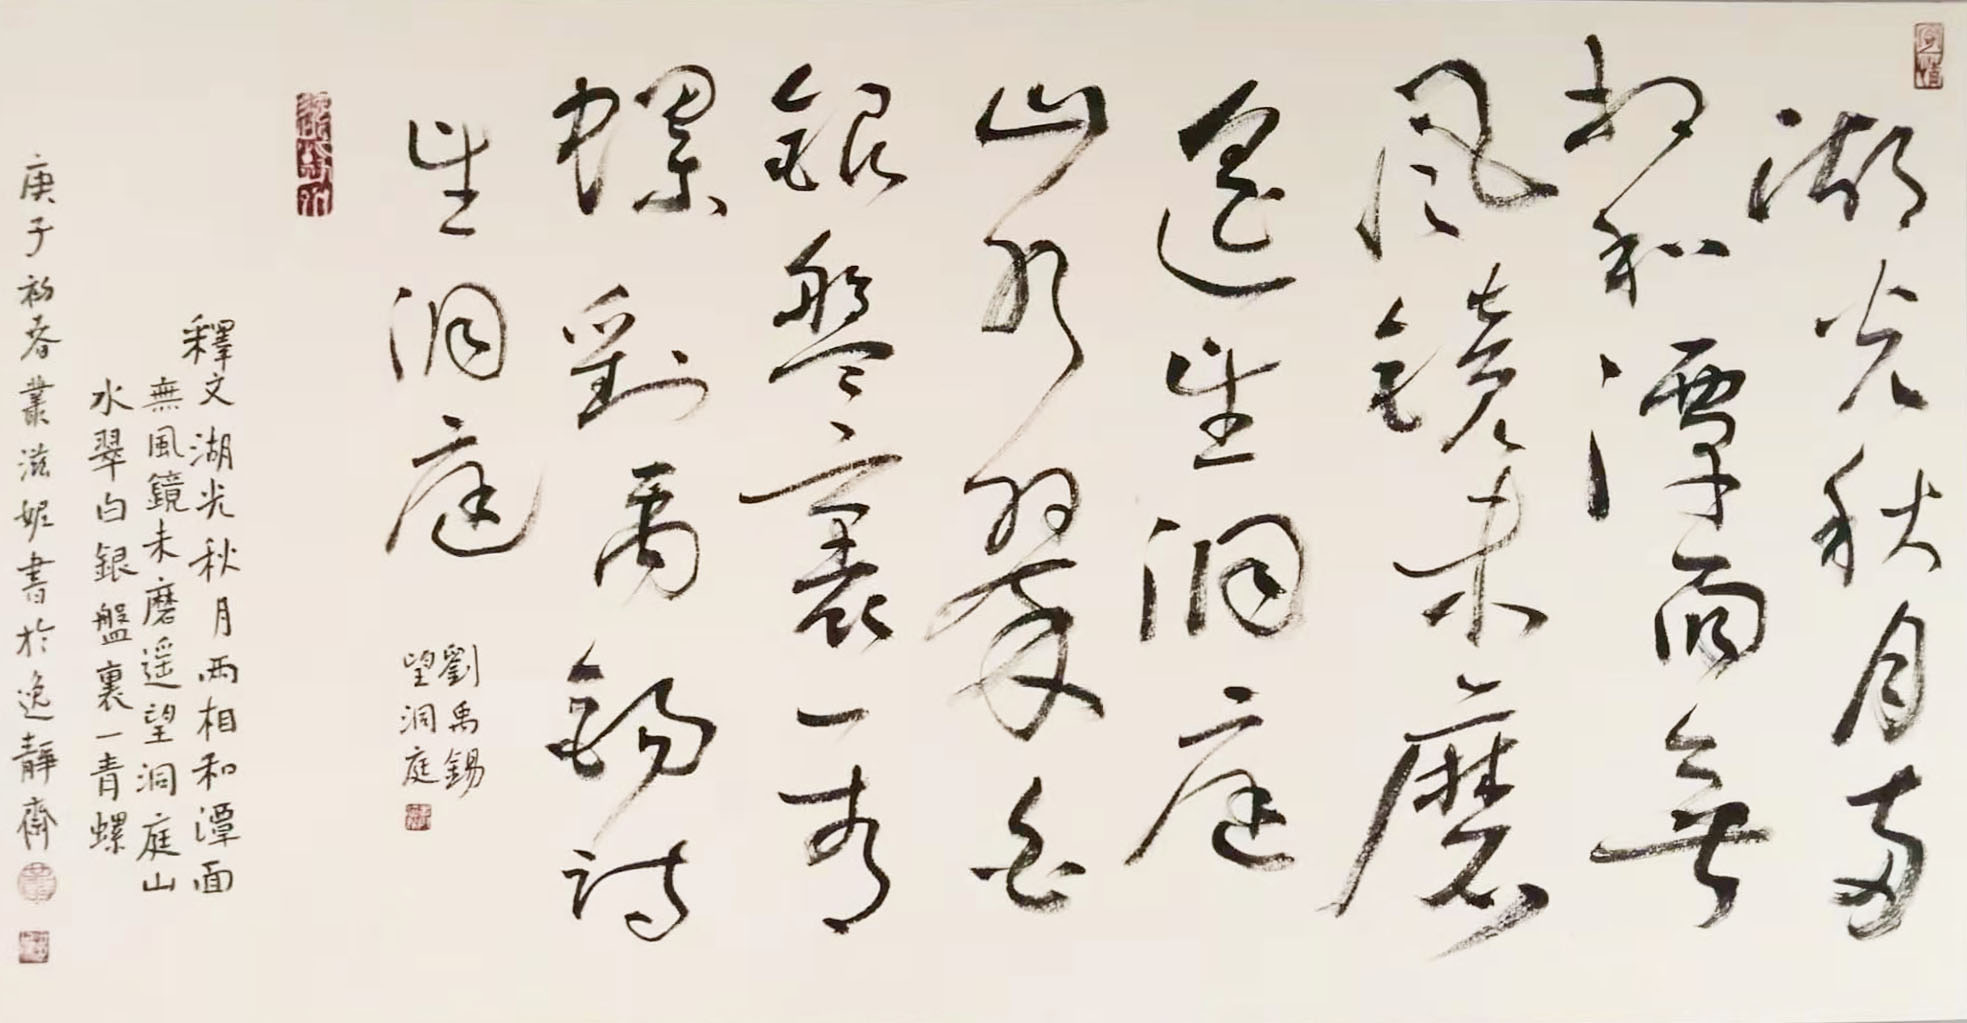 湖光秋月两
相和潭面無
風鏡未磨
遥望洞庭
山水翠白
銀盤裏一青
螺劉禹錫詩
望洞庭
劉禹錫
望洞庭
釋文湖光秋月両相和潭面
無風鏡未磨遥望洞庭山
水翠白銀盤裏一青螺
庚子初春叢滋妮書於逸靜齋